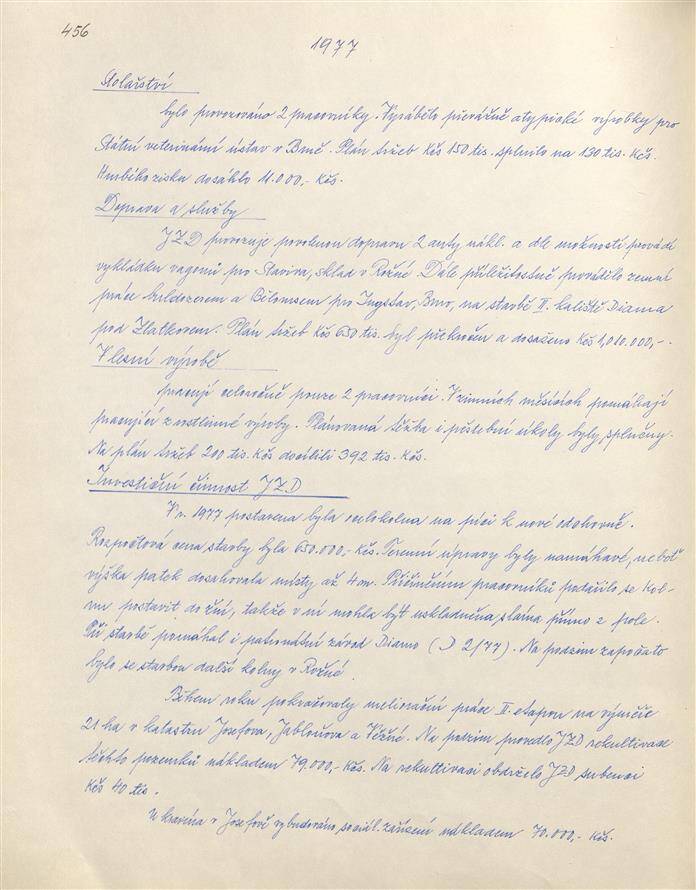 456
1977
Stolařství
bylo provozováno 2 pracovníky. Vyráběto převážně atypické výrobky pro
Státní veterinární ústav v Brně. Plán tržeb Kčs 150 tis. splnilo na 130 tis. Kčs.
Hrubého zisku dosáhlo 11.000,- Kčs.
Doprava a služby
JZD provozuje povolenou dopravu 2 auty nákl. a dle možností provádí
vykládku vagonů pro Staviva, sklad v Rožné. Dále příležitostně provádělo zemní
práce buldozerem a Bělorusem pro Ingstav, Brno, na stavbě II. kaliště Diama
pod Zlatkovem. Plán tržeb Kčs 650 tis. byl překročen a dosaženo Kčs 1,010.000,-.
V lesní výrobě
pracují celoročně pouze 2 pracovníci. V zimních měsících pomáhají
pracující z rostlinné výroby. Plánovaná těžba i pěstební úkoly byly splněny.
Na plán tržeb 200 tis. Kčs docílili 392 tis. Kčs.
Investiční činnost JZD
V r. 1977 postavena byla ocelokolna na píci k nové odchovně.
Rozpočtová cena stavby byla 650.000,- Kčs. Terenní úpravy byly namáhavé, neboť
výška patek dosahovala místy až 4 m. Přičiněním pracovníků podařilo se kol-
nu postavit do žní, takže v ní mohla být uskladněna sláma přímo z pole.
Při stavbě pomáhal i patronátní závod Diamo (D 2/77). Na podzim započato
bylo se stavbou další kolny v Rožné.
Během roku pokračovaly meliorační práce II. etapou na výměře
21 ha v katastru Josefova, Jabloňova a Věžné. Na podzim provedlo JZD rekultivaci
těchto pozemků nákladem 79.000,- Kčs. Na rekultivaci obdrželo JZD subvenci
Kčs 40 tis.
U kravína v Josefově vybudováno sociál. zařízení nákladem 70.000,- Kčs.